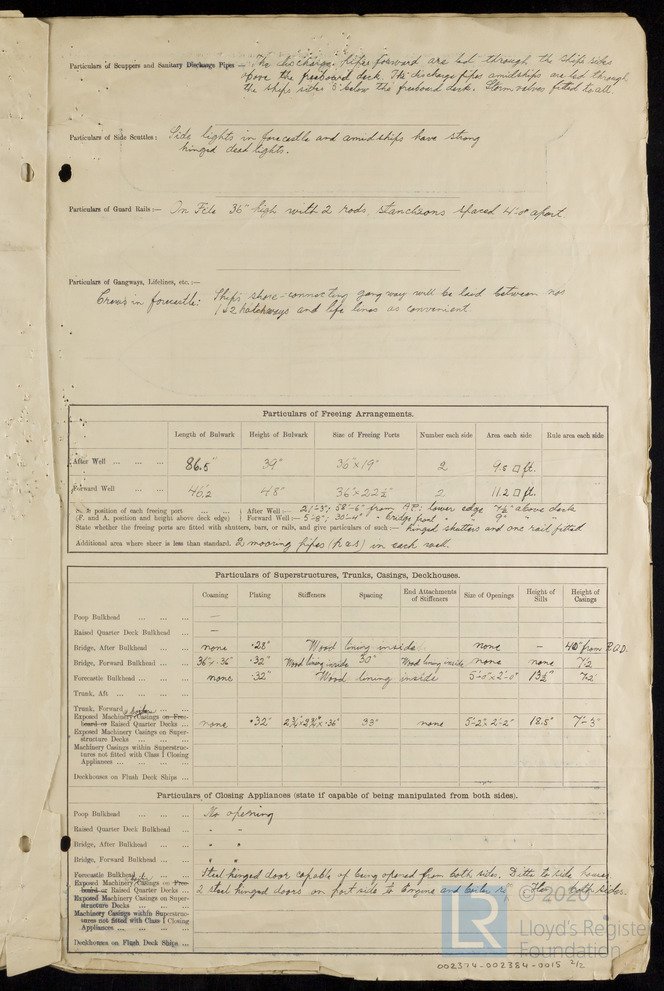 Particulars of Scuppers and Sanitary Discharge Pipes — The discharge pipes forward are led through the ships sides
above the freeboard deck. The discharge pipes amidships are led through
the ships sides 5" below the freeboard deck. Storm valves fitted to all.
Particulars of Side Scuttles: Side lights in forecastle and amidships have strong
hinged dead lights.
Particulars of Guard Rails:— On Fcle 36" high with 2 rods, stanchions spaced 4'-0" apart.
Particulars of Gangways, Lifelines, etc.:—
Crews in forecastle: Ships shore-connecting gangway will be laid between nos
1 & 2 hatchways and life lines as convenient.
Particulars of Freeing Arrangements.
Length of Bulwark Height of Bulwark Size of Freeing Ports Number each side Area each side Rule area each side
After Well ... ... ... 86.5' 39" 36" x 19" 2 9.5 □ ft.
Forward Well ... ... 48" 36" x 22½" 2 11.2 □ ft.
State position of each freeing port ... ... After Well:— 58'-6" from A.P.: lower edge 7½" above deck
(F. and A. position and height above deck edge) Forward Well:— 5'-8"; 30'-4" " bridge front " 9" " "
State whether the freeing ports are fitted with shutters, bars, or rails, and give particulars of such:— hinged shutters and one rail fitted
Additional area where sheer is less than standard. 2 mooring pipes (P & S) in each well.
Particulars of Superstructures, Trunks, Casings, Deckhouses.
Coaming Plating Stiffeners Spacing End Attachments of Stiffeners Size of Openings Height of Sills Height of Casings
Poop Bulkhead ... ... ... —
Raised Quarter Deck Bulkhead ... —
Bridge, After Bulkhead ... ... none .28" Wood lining inside none – 40" from R.Q.D.
Bridge, Forward Bulkhead ... ... 36" x .36" .32" Wood lining inside 30" Wood lining inside none none 7'2
Forecastle Bulkhead ... ... none .32" Wood lining inside 5'-0" x 2'-0" 13½" 7'2"
Trunk, Aft ... ... ...
Trunk, Forward ... ...
Exposed Machinery Casings on Free-
board or Raised Quarter Decks ... none .32" 2¾" x 2¾" x .36" 33" none 5'-2" x 2'-2" 18.5" 7'-3"
Exposed Machinery Casings on Super-
structure Decks ... ... ...
Machinery Casings within Superstruc-
tures not fitted with Class I Closing
Appliances ... ... ... ...
Deckhouses on Flush Deck Ships ...
Particulars of Closing Appliances (state if capable of being manipulated from both sides).
Poop Bulkhead ... ... ... No opening
Raised Quarter Deck Bulkhead ... " "
Bridge, After Bulkhead ... ... " "
Bridge, Forward Bulkhead ... ... " "
Forecastle Bulkhead ... Steel hinged door capable of being opened from both sides. Ditto to side houses
Exposed Machinery Casings on Free-
board or Raised Quarter Decks ... 2 steel hinged doors on port side to Engine and boiler both sides.
Exposed Machinery Casings on Super-
structure Decks ... ... ...
Machinery Casings within Superstruc-
tures not fitted with Class I Closing
Appliances ... ... ... ...
Deckhouses on Flush Deck Ships ...
© 2020
LR
Lloyd's Register
Foundation
002374-002384-0015 2/2